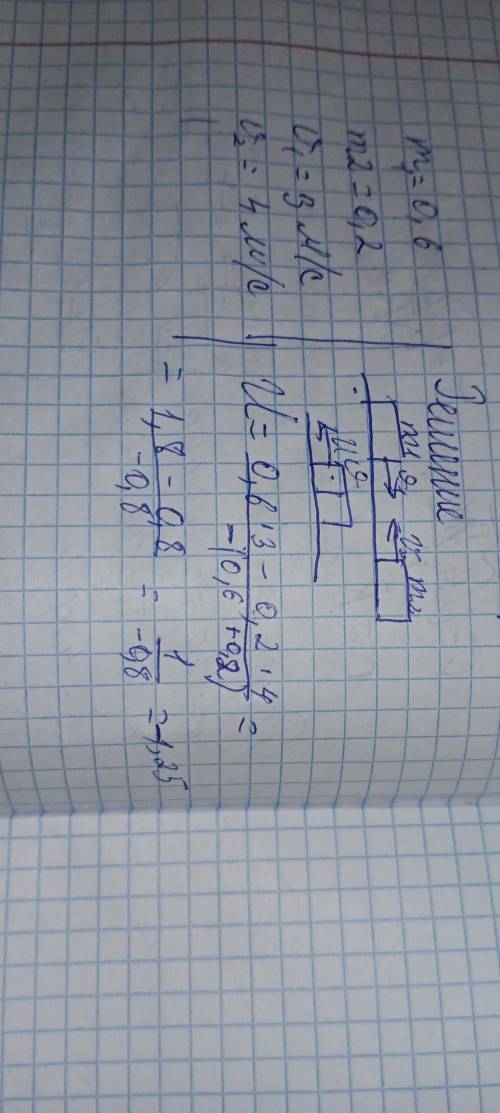 m₁ = 0,6
m2 = 0,2
υ₁ = 3 м/с
υ₂ = 4 м/с
Решение
m₁ υ₁ υ₂ m₂
U = 0,6·3 - 0,2·4 / -(0,6+0,2) =
= 1,8 - 0,8 / -0,8 = 1 / -0,8 = -1,25